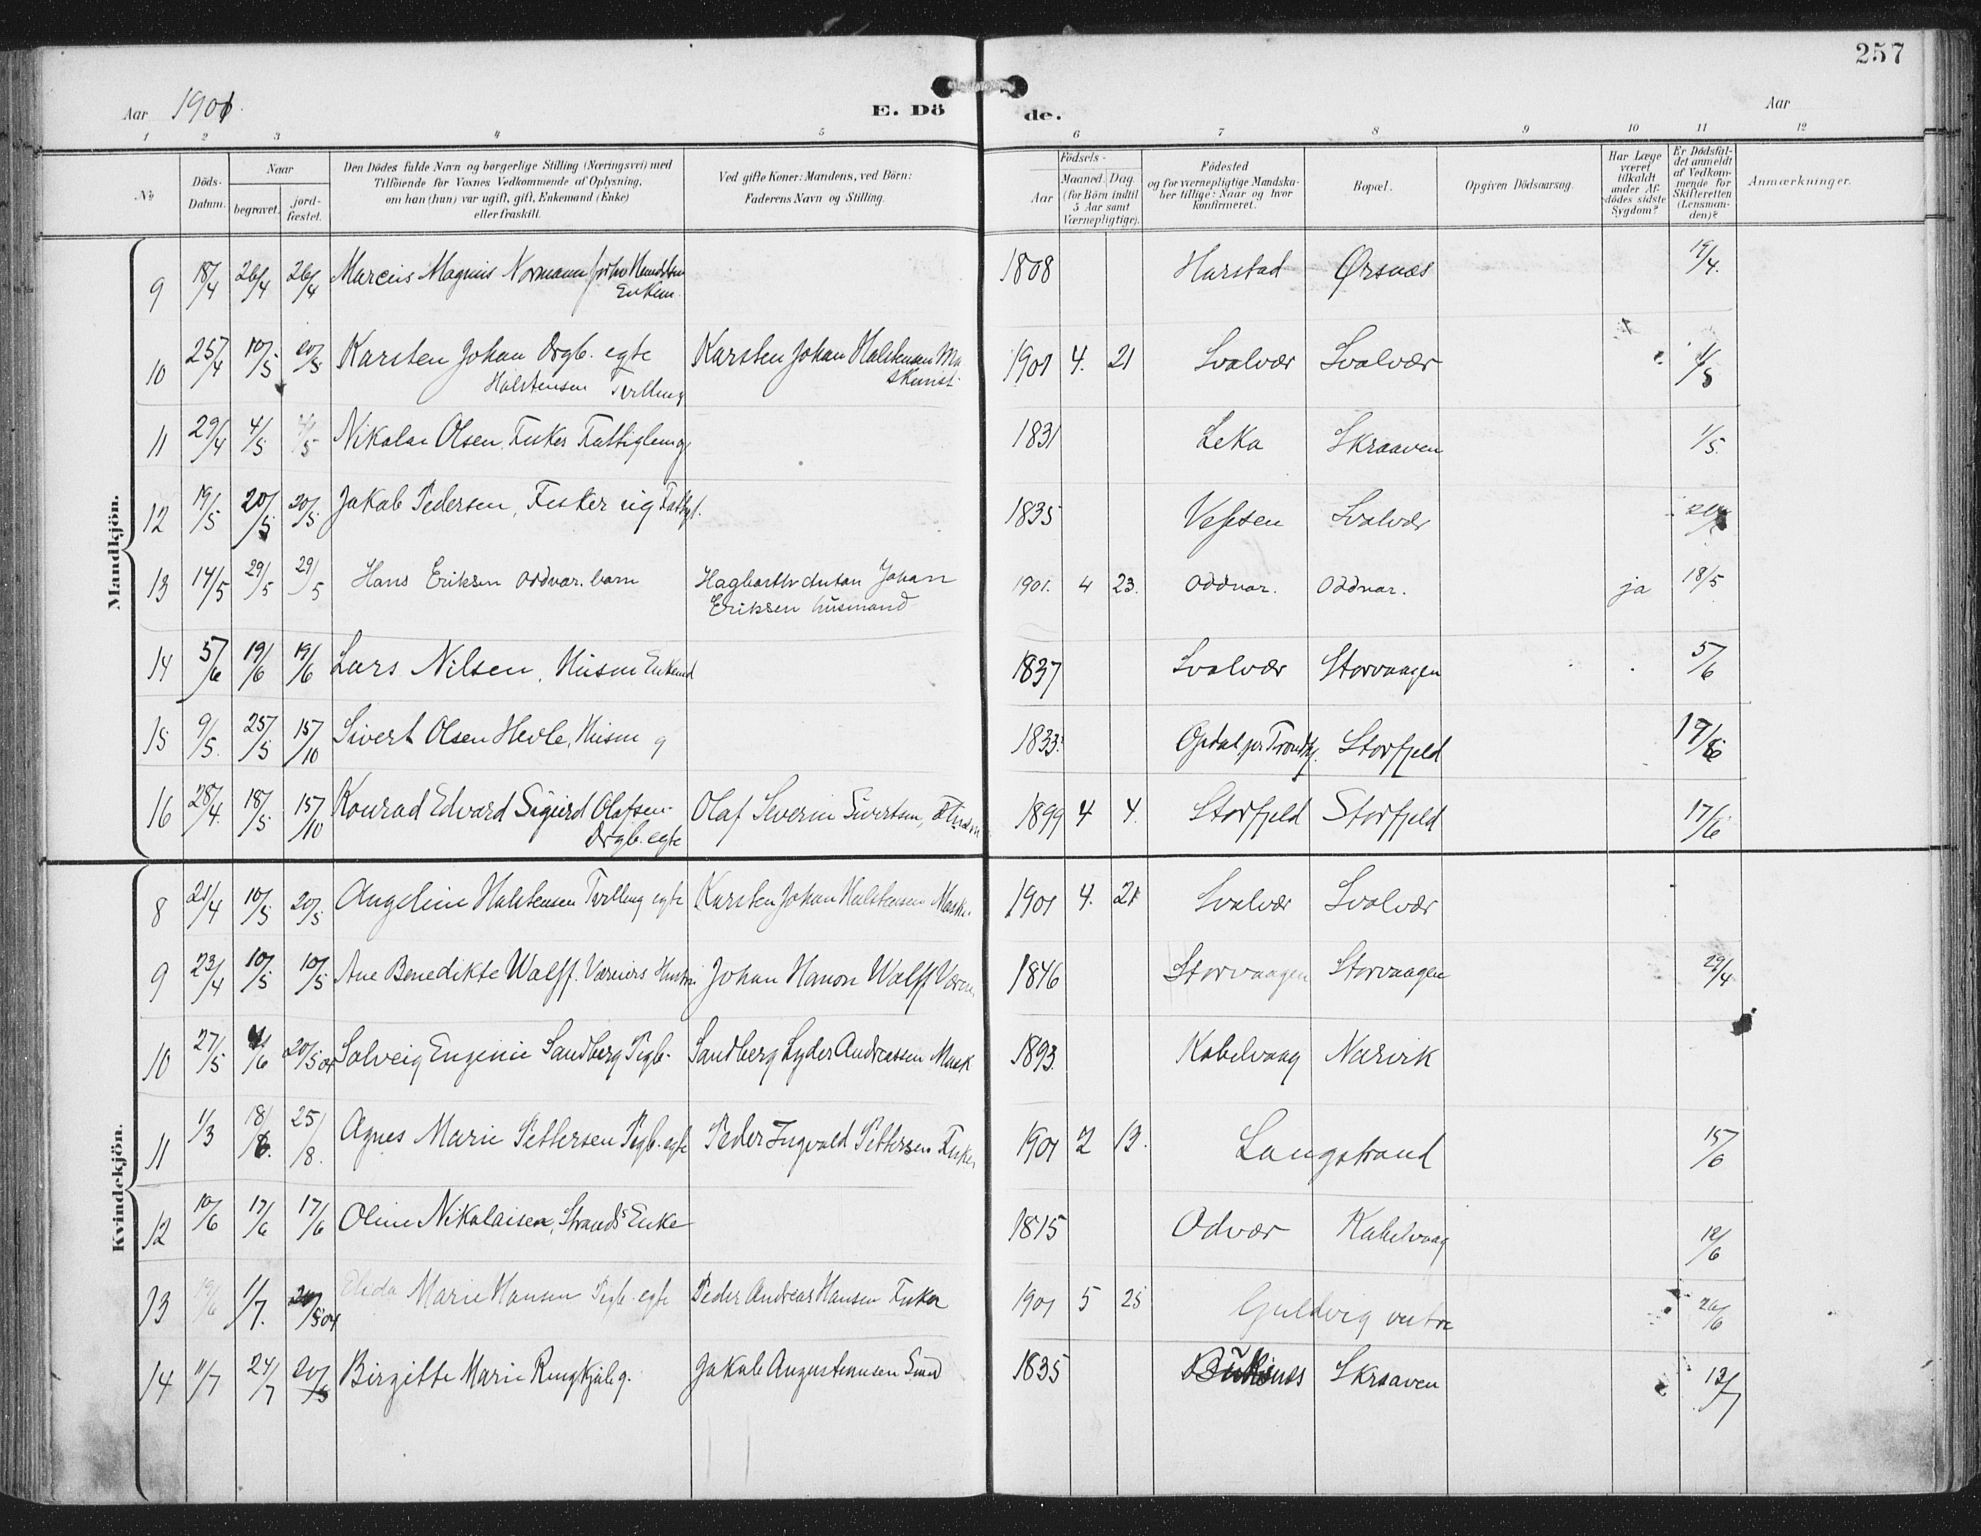 257
Aar 1901.
E. Dö de.
Aar
1 2 3 4 5 6 7 8 9 10 11 12
No
Döds-Datum.
Naar
begravet.
jord-fæstet.
Den Dödes fulde Navn og borgerlige Stilling (Næringsvei) med
Tilföiende for Voxnes Vedkommende af Oplysning,
om han (hun) var ugift, gift, Enkemand (Enke)
eller fraskilt.
Ved gifte Koner: Mandens, ved Börn:
Faderens Navn og Stilling.
Födsels-
Aar
Maaned. Dag.
(for Börn indtil
5 Aar samt
Værnepligtige).
Födested
og for værnepligtige Mandska-
ber tillige: Naar og hvor
konfirmeret.
Bopæl.
Opgiven Dödsaarsag.
Har Læge
været
tilkaldt
under Af-
dödes sidste
Sygdom?
Er Dödsfal-
det anmeldt
af Vedkom-
mende for
Skifteretten
(Lensman-
den)?
Anmærkninger.
Mandkjön.
9 18/4 26/4 26/4 Marcus Magnus Normann 1808 Harstad Ørsnæs 19/4.
Enkem.
10 25/4 10/5 20/5 Karsten Johan Drgb. egte Karsten Johan Halstensen 1901 4. 21 Svolvær Svolvær 1/5
Halstensen Tvilling
11 29/4 4/5 Nikolai Olsen, Fisker Fattiglem g 1831 Leka Skraaven 1/5.
12 19/5 20/5 20/5. Jakob Pedersen, Fisker ug 1835 Vefsen Svolvær
13 14/5 29/5 29/5 Hans Eriksen oddvar. barn Hagbarth Anton Johan 1901. 4 23. oddvar. oddvar. ja 18/5
Eriksen husmand
14 5/6 19/6 19/6 Lars Nilsen, Husm Enkemd 1837 Svolvær Storvaagen 5/6
15 9/5. 25/5 15/10 Sivert Olsen Hevle, Husm g 1833. Opdal pr Trondhj. Storfjeld 17/6
16 28/4. 18/5 15/10 Konrad Edvard Sigurd Olafsen Olaf Severin Sivertsen, 1899 4 4. Storfjeld Storfjeld 17/6
Drgb. egte
Kvindekjön.
8 21/4 10/5 20/5 Angeline Halstensen Tvilling egte Karsten Johan Halstensen Mask. 1901 4. 21 Svolvær Svolvær
9 23/4 10/5 10/5 Ane Benedikte Wolff. Væreiers Hustru Johan Hanon Wolff 1846 Storvaagen Storvaagen 29/4
10 27/5 /6 20/5 04 Solveig Eugenie Sandberg Pigb. Sandberg Lyder Andreassen Mask 1893. Kabelvaag Narvik
11 1/3 18/6. 25/8. Agnes Marie Pettersen Pigb. egte Peder Ingvald Pettersen Fisker 1901 2 13. Langstrand 15/6
12 10/6 17/6 17/6 Oline Nikolaisen, Strands Enke 1815 Odvær Kabelvaag 12/6
13 19/6 1/7. 20/5 04 Marie Hansen Pigb. egte Peder Andreas Hansen Fisker 1901 5 25 Guldvig vestre 26/6
14 11/7 24/7 20/5 Birgitte Marie Ringkjøb g. Jakob Augustinusen 1835 Buksnes Skraaven 12/7